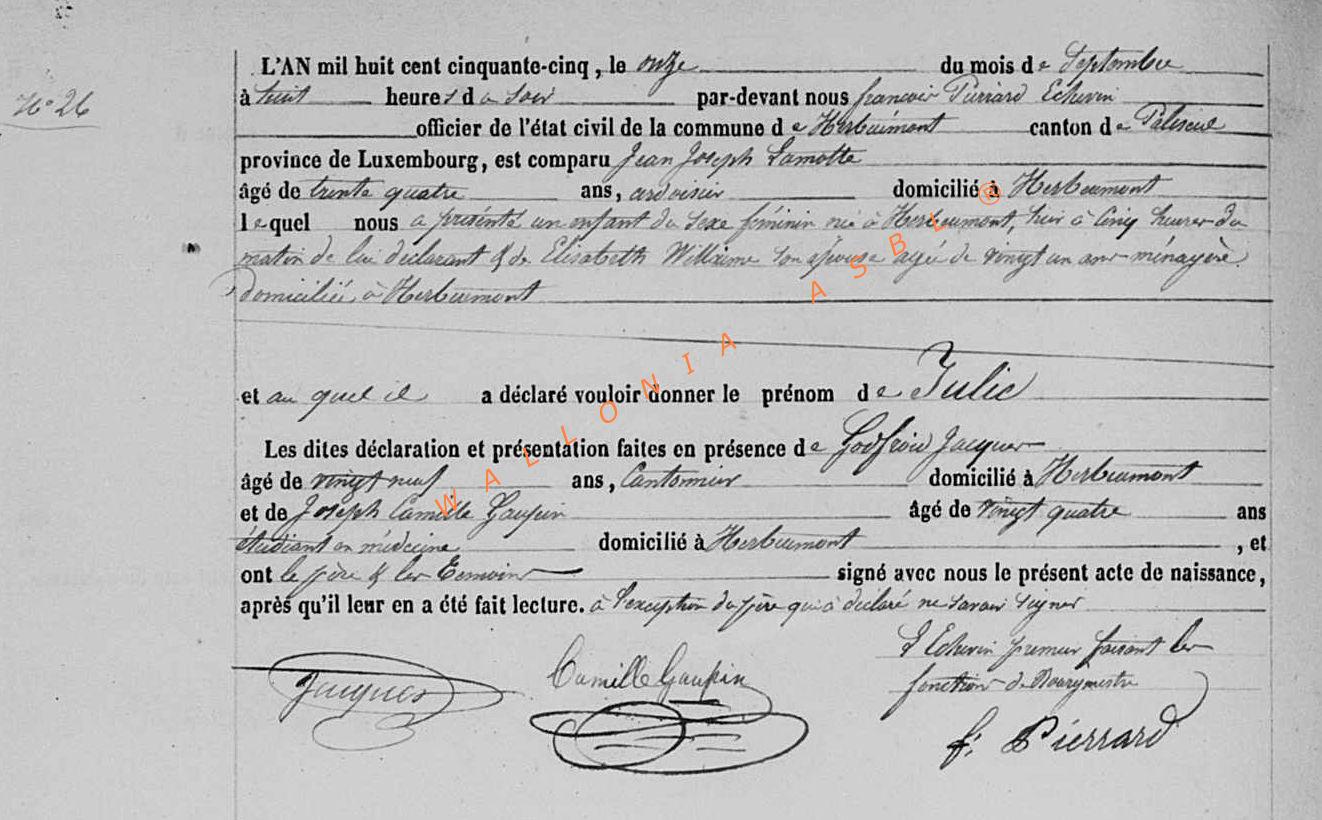 N° 26
L'AN mil huit cent cinquante-cinq, le onze du mois de Septembre
à huit heures du soir par-devant nous françois Pierrard Echevin
officier de l'état civil de la commune de Herbeumont canton de Paliseul
province de Luxembourg, est comparu Jean Joseph Lamotte
âgé de trente quatre ans, ardoisier domicilié à Herbeumont
lequel nous a présenté un enfant du sexe féminin né à Herbeumont, hier à cinq heures du
matin de lui déclarant & de Elisabeth Willième son épouse agée de vingt un ans ménagère
domiciliée à Herbeumont
et au quel il a déclaré vouloir donner le prénom de Julie
Les dites déclaration et présentation faites en présence de Godfroid Jacques
âgé de vingt neuf ans, Cantonnier domicilié à Herbeumont
et de Joseph Camille Gaupin âgé de vingt quatre ans
étudiant en médecine domicilié à Herbeumont, et
ont le père & les temoins signé avec nous le présent acte de naissance,
après qu'il leur en a été fait lecture. à l'exception du père qui à déclaré ne savoir signer
L'Echevin premier faisant les
fonctions de Bourgmestre
Jacques Camille Gaupin f. Pierrard
WALLONIA ASBL ®